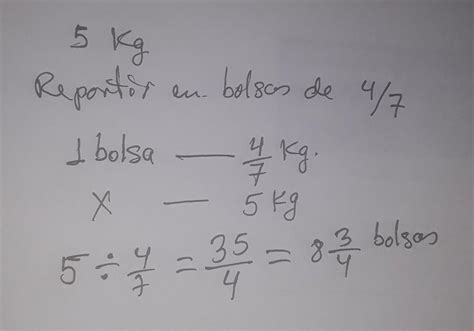 5 Kg
Repartir en bolsas de 4/7
1 bolsa — 4/7 Kg.
X — 5 Kg
5 ÷ 4/7 = 35/4 = 8 3/4 bolsas